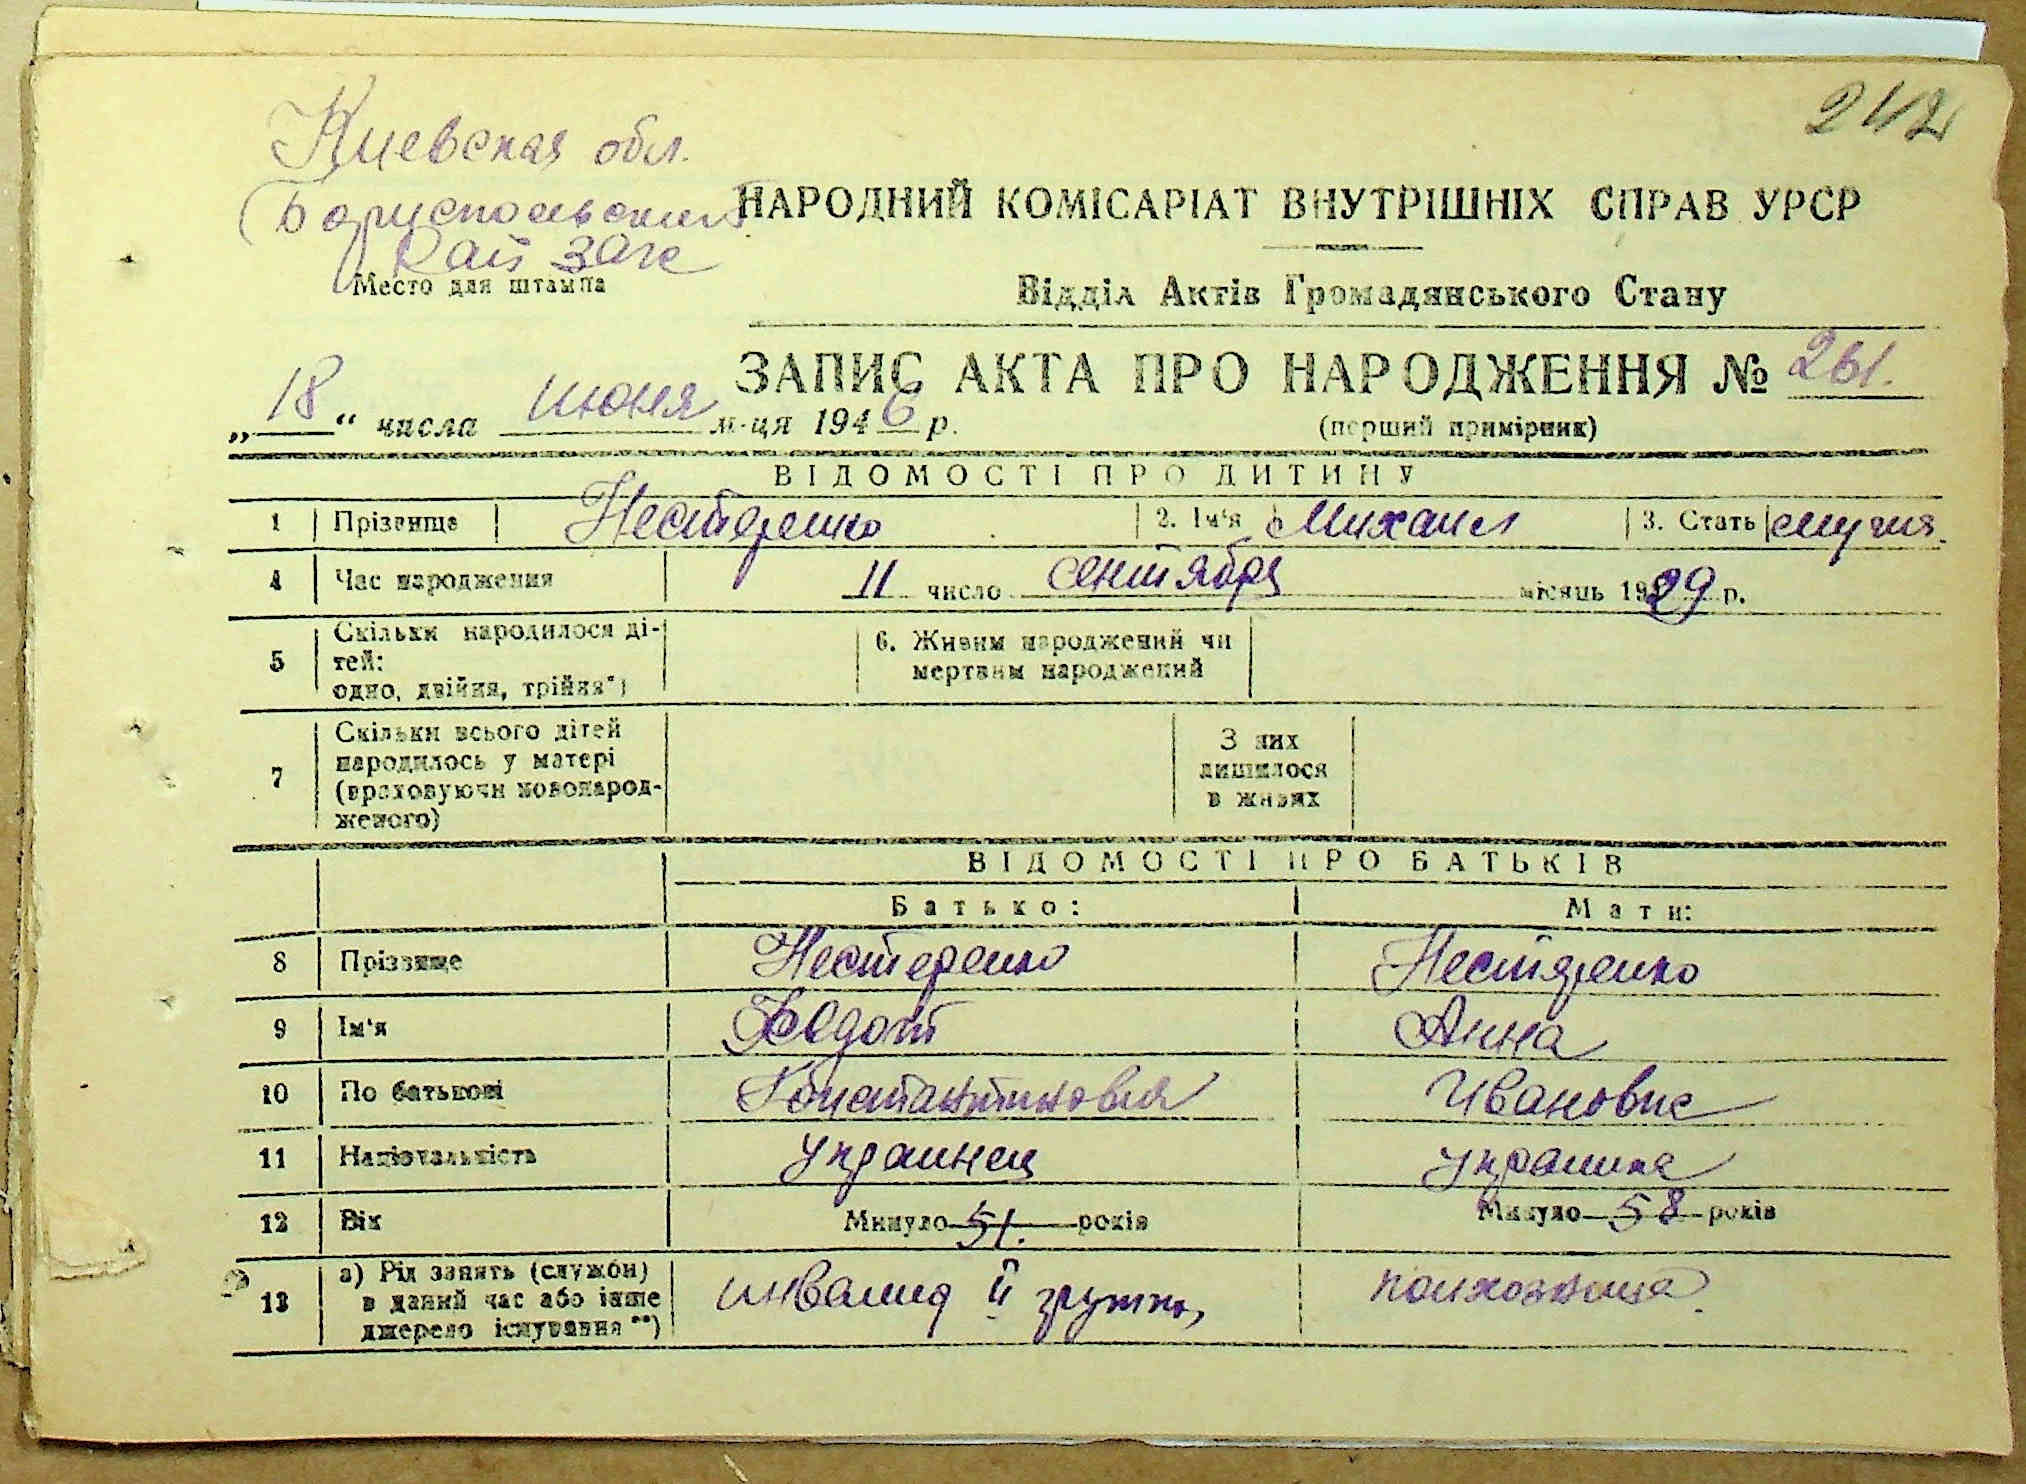 242
Киевская обл.
Бориспольский
Рай загс
Место для штампа
НАРОДНИЙ КОМІСАРІАТ ВНУТРІШНІХ СПРАВ УРСР
Відділ Актів Громадянського Стану
ЗАПИС АКТА ПРО НАРОДЖЕННЯ № 261.
„18“ числа июня м-ця 1946 р.
(перший примірник)
ВІДОМОСТІ ПРО ДИТИНУ
1 Прізвище Нестеренко 2. Ім‘я Михаил 3. Стать мужс.
4 Час народження 11 число сентября місяць 1929 р.
5 Скільки народилося ді-
тей:
одно, двійня, трійня*)
6. Живим народжений чи
мертвим народжений
7 Скільки всього дітей
народилось у матері
(враховуючи новонарод-
женого)
З них
лишилося
в живих
ВІДОМОСТІ ПРО БАТЬКІВ
Батько: Мати:
8 Прізвище Нестеренко Нестеренко
9 Ім‘я Федот Анна
10 По батькові Константинович Ивановна
11 Національність украинец украинка
12 Вік Минуло 51. років Минуло 58 років
13 а) Рід занять (служби)
в даний час або інше
джерело існування**)
инвалид II группы, колхозница.